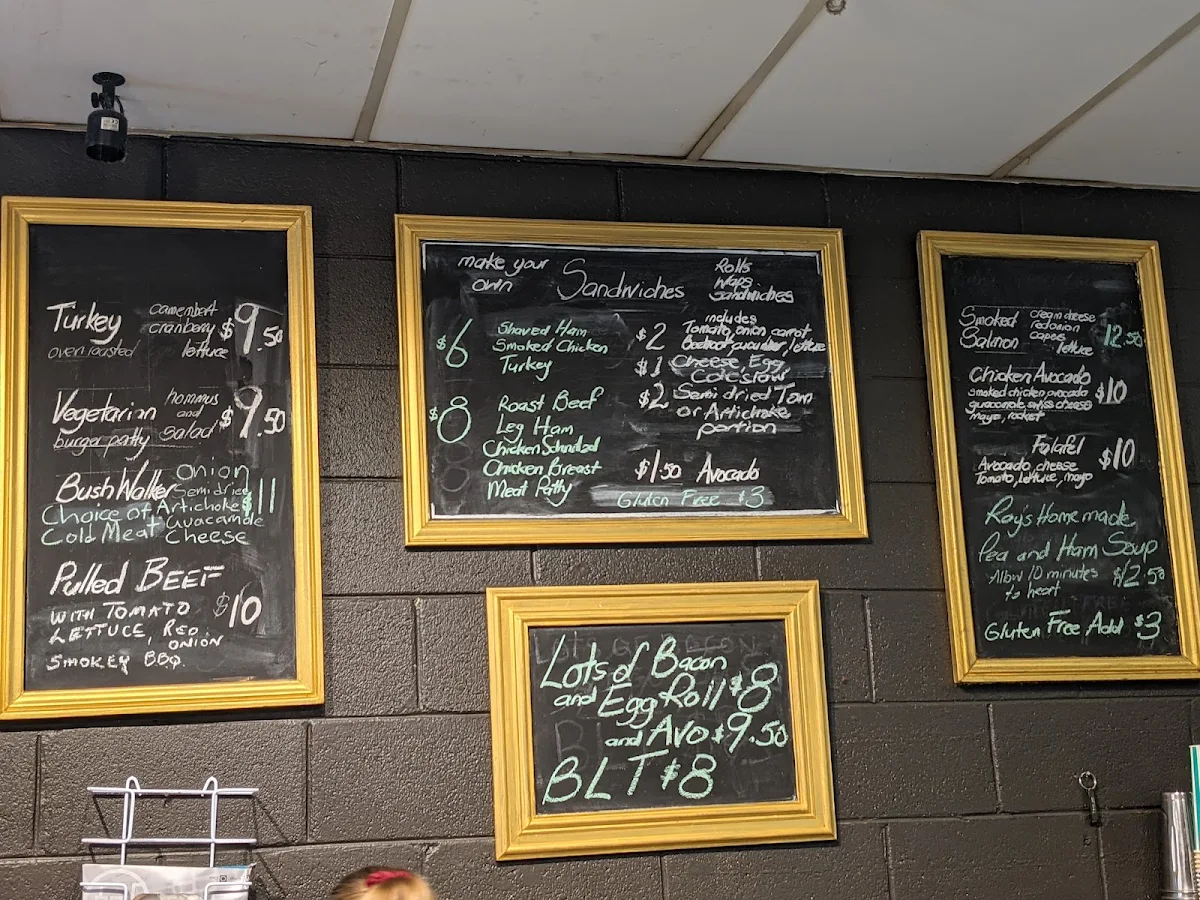 Turkey camembert $9.50
oven roasted cranberry
lettuce
Vegetarian hommus $9.50
burger patty and
salad
BushWalker Onion $11
Semi dried
Choice of Artichoke
Cold Meat Guacamole
Cheese
Pulled BEEF
WITH TOMATO $10
LETTUCE, RED
ONION
SMOKEY BBQ.
make your own Sandwiches Rolls
wraps
sandwiches
$6 Shaved Ham
Smoked Chicken
Turkey
$8 Roast Beef
Leg Ham
Chicken Schnitzel
Chicken Breast
Meat Patty
includes
$2 Tomato, onion, carrot
Beetroot, cucumber, lettuce
$1 Cheese, Egg
Coleslaw
$2 Semi dried Tom
or Artichoke
portion
$1.50 Avocado
Gluten Free $3
Lots of Bacon
and Egg Roll $8
and Avo $9.50
BLT $8
Smoked cream cheese 12.50
Salmon red onion
capers
lettuce
Chicken Avocado $10
Smoked chicken, avocado
guacamole, swiss cheese
mayo, rocket
Falafel $10
Avocado, cheese
Tomato, lettuce, mayo
Ray's Homemade
Pea and Ham Soup
Allow 10 minutes $12.50
to heart
Gluten Free Add $3